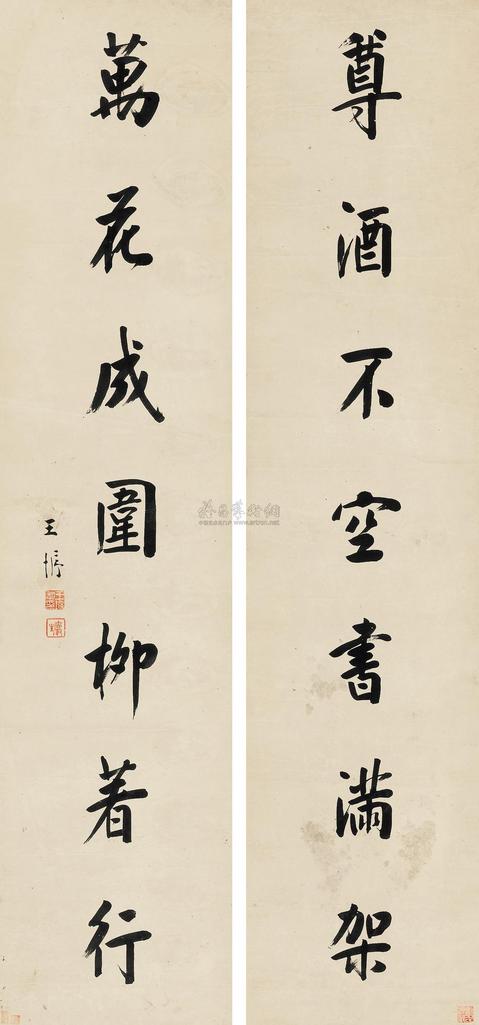 尊酒不空書滿架
萬花成圍柳着行
王
雅昌藝術網
www.artron.net